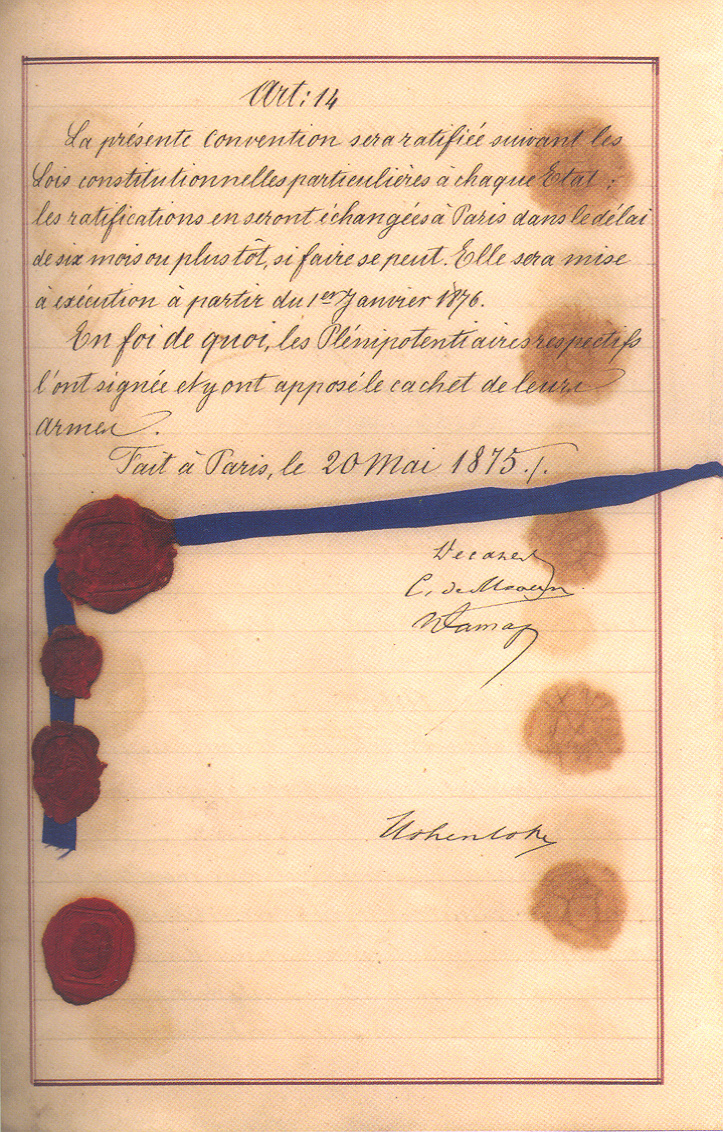 Art: 14
La présente Convention sera ratifiée suivant les
Lois constitutionnelles particulières à chaque Etat ;
les ratifications en seront échangées à Paris dans le délai
de six mois ou plus tôt, si faire se peut. Elle sera mise
à exécution à partir du 1er Janvier 1876.
En foi de quoi, les Plénipotentiaires respectifs
l'ont signée et y ont apposé le cachet de leurs
armes.
Fait à Paris, le 20 Mai 1875./.
Decazes
C. de Meaux
Dumas
Hohenlohe